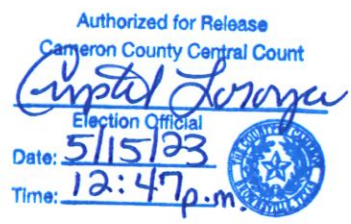 Authorized for Release
Cameron County Central Count
Election Official
Date: 5/15/23
Time: 12:47 p.m.